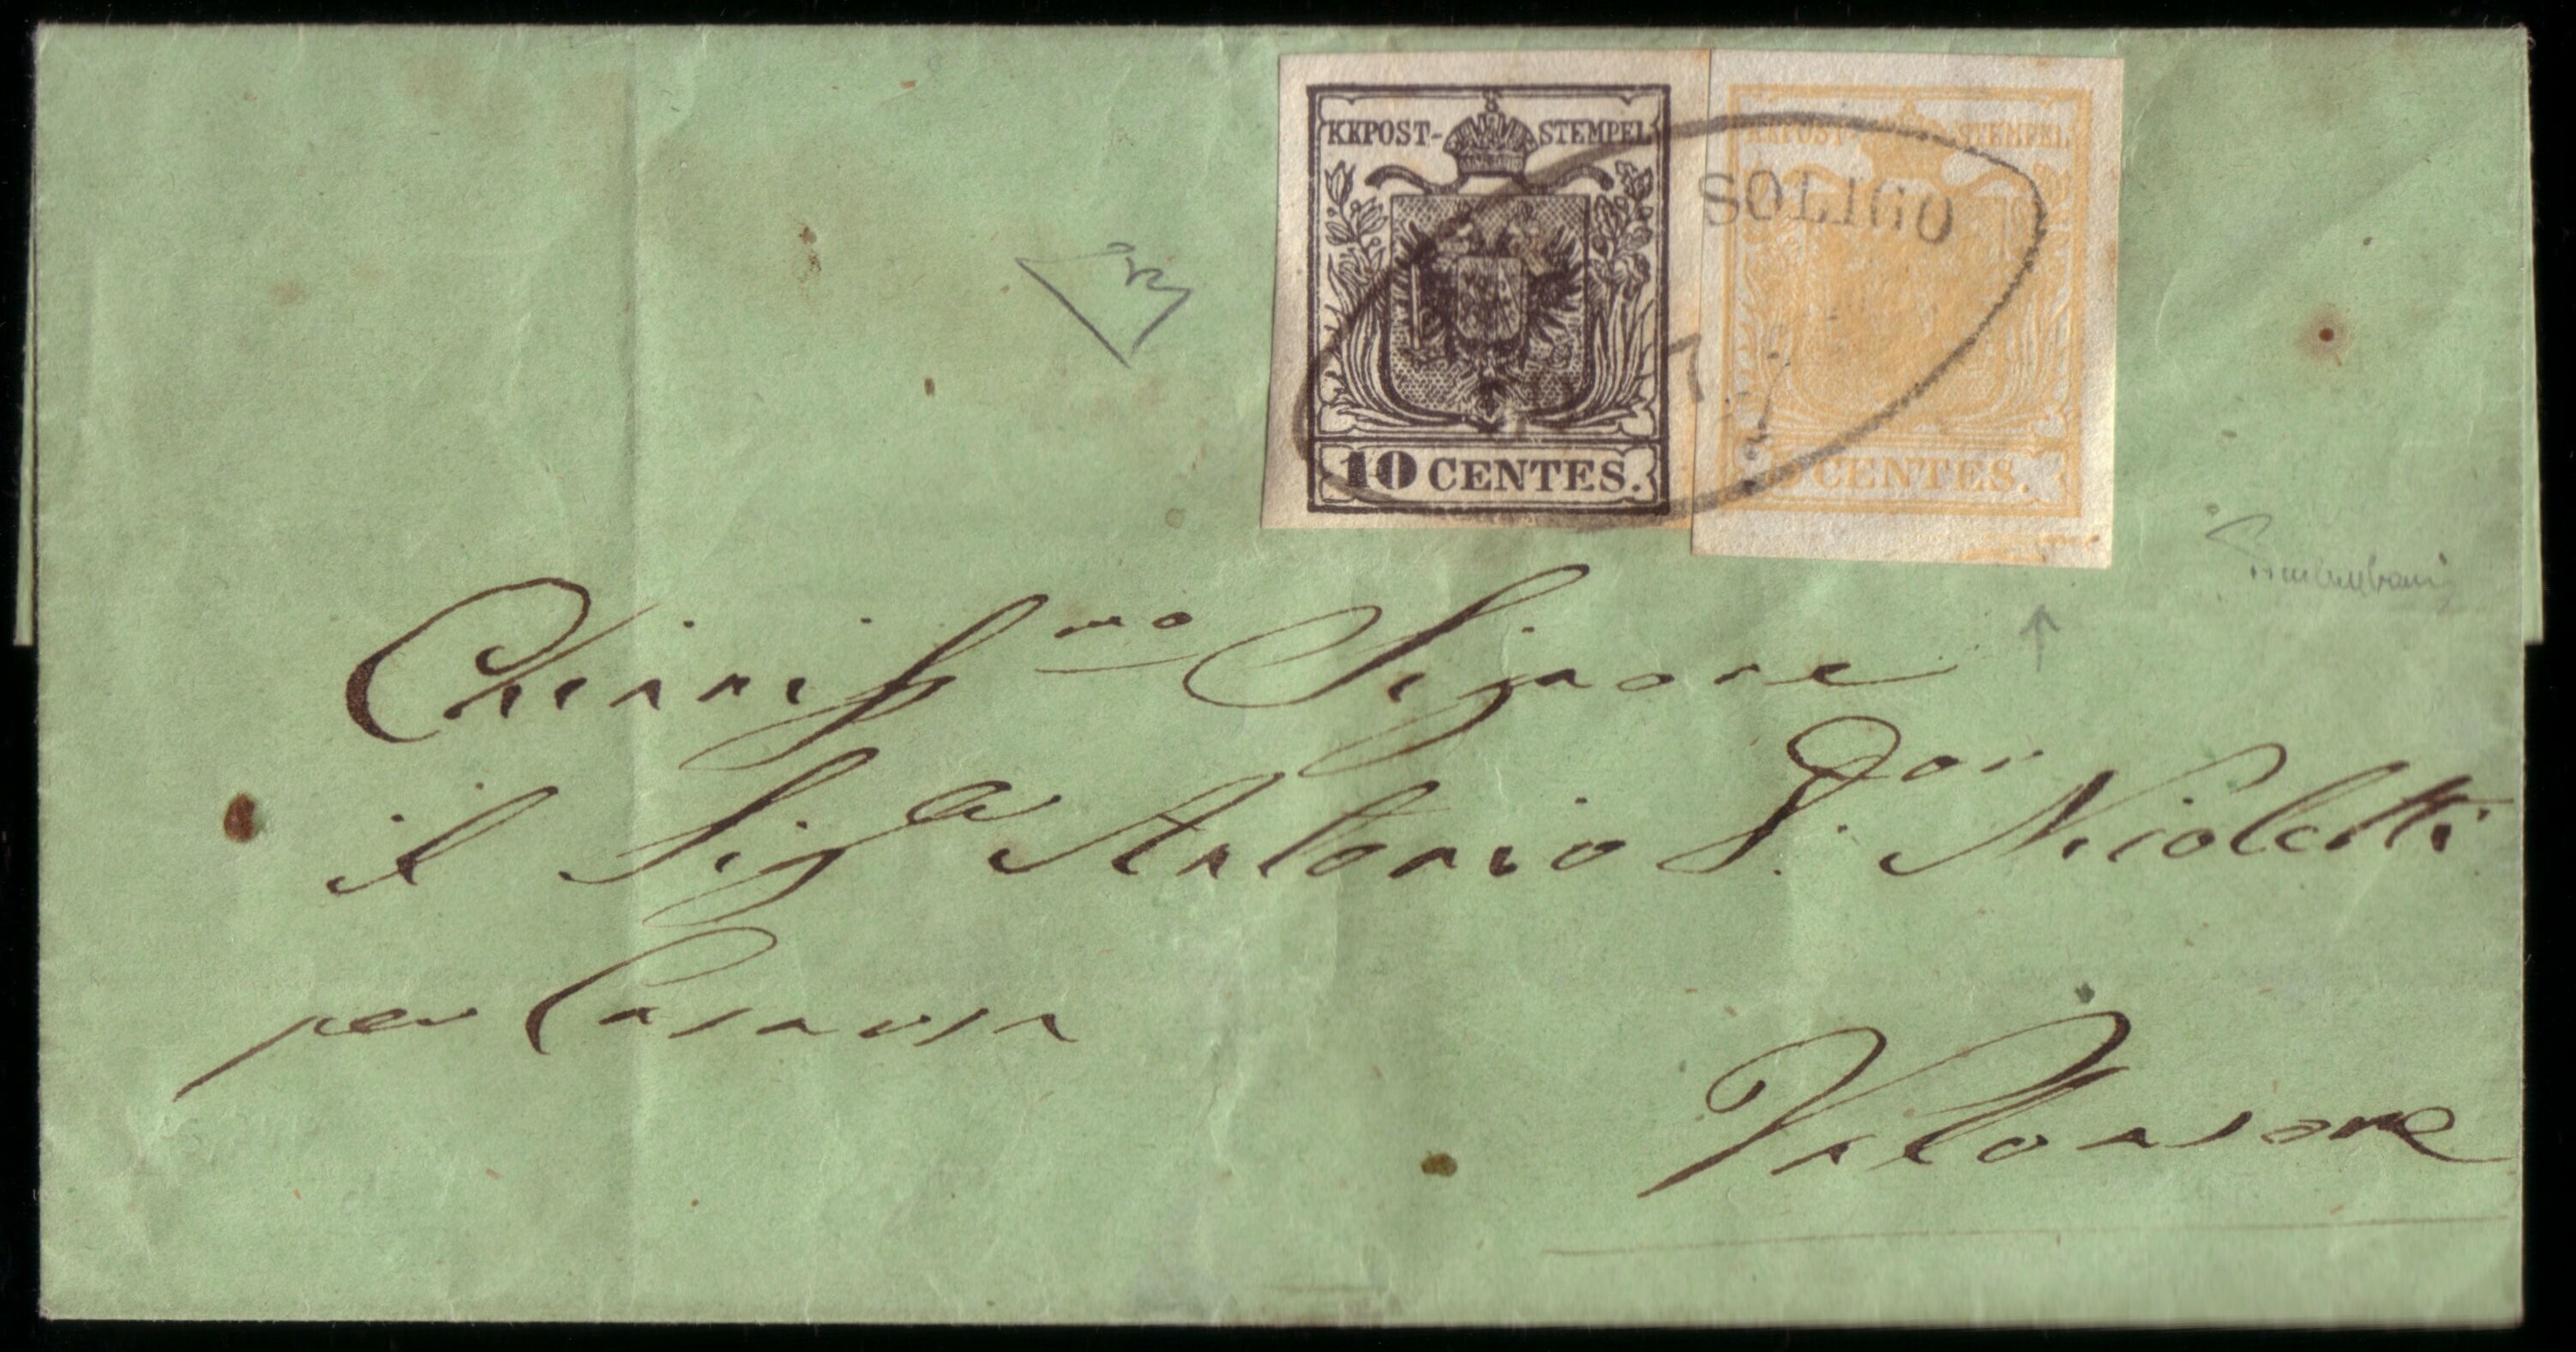 KKPOST-STEMPEL
10 CENTES.
KKPOST-STEMPEL
CENTES.
SOLIGO
7
Chiariss.mo Signore
il Sigr Antonio Dor Nicoletti
per Casarsa
Valvasone